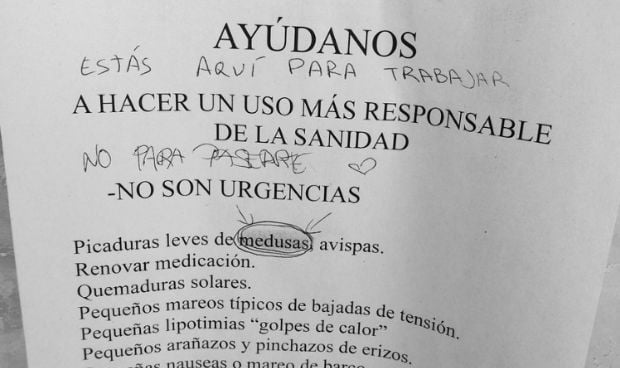 AYÚDANOS
ESTÁS AQUÍ PARA TRABAJAR
A HACER UN USO MÁS RESPONSABLE
DE LA SANIDAD
NO PARA
-NO SON URGENCIAS
Picaduras leves de medusas, avispas.
Renovar medicación.
Quemaduras solares.
Pequeños mareos típicos de bajadas de tensión.
Pequeñas lipotimias “golpes de calor”
Pequeños arañazos y pinchazos de erizos.
nauseas o mareo de barco